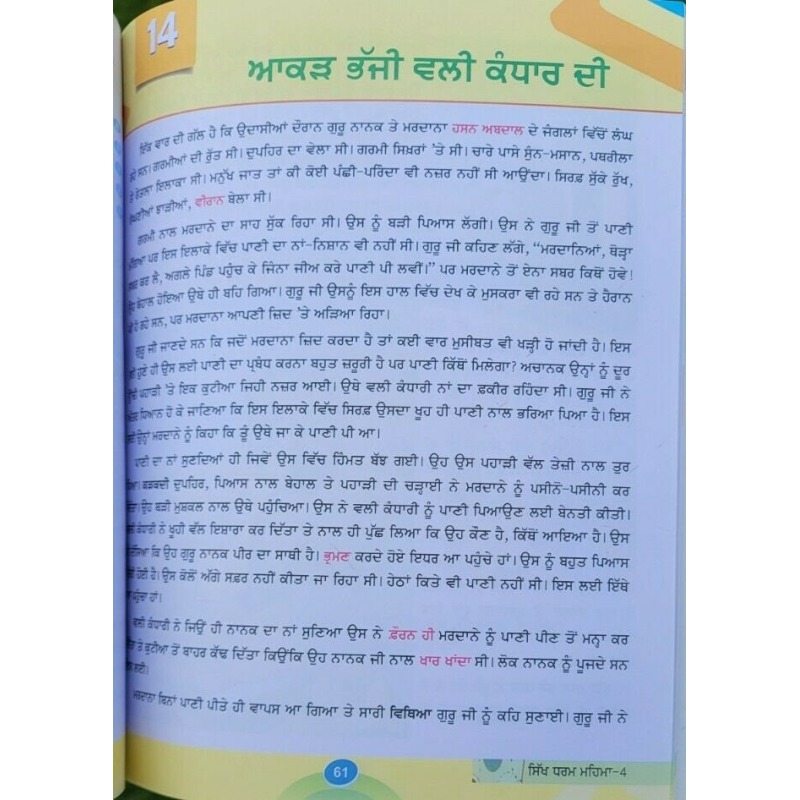 14
ਆਕੜ ਭੱਜੀ ਵਲੀ ਕੰਧਾਰ ਦੀ
ਇੱਕ ਵਾਰ ਦੀ ਗੱਲ ਹੈ ਕਿ ਉਦਾਸੀਆਂ ਦੌਰਾਨ ਗੁਰੂ ਨਾਨਕ ਤੇ ਮਰਦਾਨਾ ਹਸਨ ਅਬਦਾਲ ਦੇ ਜੰਗਲਾਂ ਵਿੱਚੋਂ ਲੰਘ
ਰਹੇ ਸਨ। ਗਰਮੀਆਂ ਦੀ ਰੁੱਤ ਸੀ। ਦੁਪਹਿਰ ਦਾ ਵੇਲਾ ਸੀ। ਗਰਮੀ ਸਿਖ਼ਰਾਂ 'ਤੇ ਸੀ। ਚਾਰੇ ਪਾਸੇ ਸੁੰਨ-ਮਸਾਨ, ਪਥਰੀਲਾ
ਤੇ ਰੇਤਲਾ ਇਲਾਕਾ ਸੀ। ਮਨੁੱਖ ਜਾਤ ਤਾਂ ਕੀ ਕੋਈ ਪੰਛੀ-ਪਰਿੰਦਾ ਵੀ ਨਜ਼ਰ ਨਹੀਂ ਸੀ ਆਉਂਦਾ। ਸਿਰਫ਼ ਸੁੱਕੇ ਰੁੱਖ,
ਝਾੜੀਆਂ, ਵੀਰਾਨ ਬੇਲਾ ਸੀ।
ਗਰਮੀ ਨਾਲ ਮਰਦਾਨੇ ਦਾ ਸਾਹ ਸੁੱਕ ਰਿਹਾ ਸੀ। ਉਸ ਨੂੰ ਬੜੀ ਪਿਆਸ ਲੱਗੀ। ਉਸ ਨੇ ਗੁਰੂ ਜੀ ਤੋਂ ਪਾਣੀ
ਪਰ ਇਸ ਇਲਾਕੇ ਵਿੱਚ ਪਾਣੀ ਦਾ ਨਾਂ-ਨਿਸ਼ਾਨ ਵੀ ਨਹੀਂ ਸੀ। ਗੁਰੂ ਜੀ ਕਹਿਣ ਲੱਗੇ, "ਮਰਦਾਨਿਆਂ, ਥੋੜ੍ਹਾ
ਸਬਰ ਕਰ ਲੈ, ਅਗਲੇ ਪਿੰਡ ਪਹੁੰਚ ਕੇ ਜਿੰਨਾ ਜੀਅ ਕਰੇ ਪਾਣੀ ਪੀ ਲਵੀਂ।" ਪਰ ਮਰਦਾਨੇ ਤੋਂ ਏਨਾ ਸਬਰ ਕਿਥੋਂ ਹੋਵੇ!
ਉਹ ਬੇਹਾਲ ਹੋਇਆ ਉਥੇ ਹੀ ਬਹਿ ਗਿਆ। ਗੁਰੂ ਜੀ ਉਸਨੂੰ ਇਸ ਹਾਲ ਵਿੱਚ ਦੇਖ ਕੇ ਮੁਸਕਰਾ ਵੀ ਰਹੇ ਸਨ ਤੇ ਹੈਰਾਨ
ਹੋ ਰਹੇ ਸਨ, ਪਰ ਮਰਦਾਨਾ ਆਪਣੀ ਜ਼ਿਦ 'ਤੇ ਅੜਿਆ ਰਿਹਾ।
ਗੁਰੂ ਜੀ ਜਾਣਦੇ ਸਨ ਕਿ ਜਦੋਂ ਮਰਦਾਨਾ ਜ਼ਿਦ ਕਰਦਾ ਹੈ ਤਾਂ ਕਈ ਵਾਰ ਮੁਸੀਬਤ ਵੀ ਖੜ੍ਹੀ ਹੋ ਜਾਂਦੀ ਹੈ। ਇਸ
ਹੁਣੇ ਹੀ ਉਸ ਲਈ ਪਾਣੀ ਦਾ ਪ੍ਰਬੰਧ ਕਰਨਾ ਬਹੁਤ ਜ਼ਰੂਰੀ ਹੈ ਪਰ ਪਾਣੀ ਕਿੱਥੋਂ ਮਿਲੇਗਾ? ਅਚਾਨਕ ਉਨ੍ਹਾਂ ਨੂੰ ਦੂਰ
ਪਹਾੜੀ 'ਤੇ ਇਕ ਕੁਟੀਆ ਜਿਹੀ ਨਜ਼ਰ ਆਈ। ਉਥੇ ਵਲੀ ਕੰਧਾਰੀ ਨਾਂ ਦਾ ਫ਼ਕੀਰ ਰਹਿੰਦਾ ਸੀ। ਗੁਰੂ ਜੀ ਨੇ
ਧਿਆਨ ਹੋ ਕੇ ਜਾਣਿਆ ਕਿ ਇਸ ਇਲਾਕੇ ਵਿੱਚ ਸਿਰਫ਼ ਉਸਦਾ ਖੂਹ ਹੀ ਪਾਣੀ ਨਾਲ ਭਰਿਆ ਪਿਆ ਹੈ। ਇਸ
ਉਨ੍ਹਾਂ ਮਰਦਾਨੇ ਨੂੰ ਕਿਹਾ ਕਿ ਤੂੰ ਉਥੇ ਜਾ ਕੇ ਪਾਣੀ ਪੀ ਆ।
ਪਾਣੀ ਦਾ ਨਾਂ ਸੁਣਦਿਆਂ ਹੀ ਜਿਵੇਂ ਉਸ ਵਿੱਚ ਹਿੰਮਤ ਬੱਝ ਗਈ। ਉਹ ਉਸ ਪਹਾੜੀ ਵੱਲ ਤੇਜ਼ੀ ਨਾਲ ਤੁਰ
ਪਿਆ। ਕੜਕਦੀ ਦੁਪਹਿਰ, ਪਿਆਸ ਨਾਲ ਬੇਹਾਲ ਤੇ ਪਹਾੜੀ ਦੀ ਚੜ੍ਹਾਈ ਨੇ ਮਰਦਾਨੇ ਨੂੰ ਪਸੀਨੋ-ਪਸੀਨੀ ਕਰ
ਉਹ ਬੜੀ ਮੁਸ਼ਕਲ ਨਾਲ ਉਥੇ ਪਹੁੰਚਿਆ। ਉਸ ਨੇ ਵਲੀ ਕੰਧਾਰੀ ਨੂੰ ਪਾਣੀ ਪਿਆਉਣ ਲਈ ਬੇਨਤੀ ਕੀਤੀ।
ਵਲੀ ਕੰਧਾਰੀ ਨੇ ਖੂਹੀ ਵੱਲ ਇਸ਼ਾਰਾ ਕਰ ਦਿੱਤਾ ਤੇ ਨਾਲ ਹੀ ਪੁੱਛ ਲਿਆ ਕਿ ਉਹ ਕੌਣ ਹੈ, ਕਿੱਥੋਂ ਆਇਆ ਹੈ। ਉਸ
ਦੱਸਿਆ ਕਿ ਉਹ ਗੁਰੂ ਨਾਨਕ ਪੀਰ ਦਾ ਸਾਥੀ ਹੈ। ਭ੍ਰਮਣ ਕਰਦੇ ਹੋਏ ਇਧਰ ਆ ਪਹੁੰਚੇ ਹਾਂ। ਉਸ ਨੂੰ ਬਹੁਤ ਪਿਆਸ
ਹੋਈ ਹੈ। ਉਸ ਕੋਲੋਂ ਅੱਗੇ ਸਫ਼ਰ ਨਹੀਂ ਕੀਤਾ ਜਾ ਰਿਹਾ ਸੀ। ਹੇਠਾਂ ਕਿਤੇ ਵੀ ਪਾਣੀ ਨਹੀਂ ਸੀ। ਇਸ ਲਈ ਇੱਥੇ
ਪਹੁੰਚਾ ਹਾਂ।
ਵਲੀ ਕੰਧਾਰੀ ਨੇ ਜਿਉਂ ਹੀ ਨਾਨਕ ਦਾ ਨਾਂ ਸੁਣਿਆ ਉਸ ਨੇ ਫ਼ੌਰਨ ਹੀ ਮਰਦਾਨੇ ਨੂੰ ਪਾਣੀ ਪੀਣ ਤੋਂ ਮਨ੍ਹਾ ਕਰ
ਤੇ ਕੁਟੀਆ ਤੋਂ ਬਾਹਰ ਕੱਢ ਦਿੱਤਾ ਕਿਉਂਕਿ ਉਹ ਨਾਨਕ ਜੀ ਨਾਲ ਖਾਰ ਖਾਂਦਾ ਸੀ। ਲੋਕ ਨਾਨਕ ਨੂੰ ਪੂਜਦੇ ਸਨ
ਮਰਦਾਨਾ ਬਿਨਾਂ ਪਾਣੀ ਪੀਤੇ ਹੀ ਵਾਪਸ ਆ ਗਿਆ ਤੇ ਸਾਰੀ ਵਿਥਿਆ ਗੁਰੂ ਜੀ ਨੂੰ ਕਹਿ ਸੁਣਾਈ। ਗੁਰੂ ਜੀ ਨੇ
61
ਸਿੱਖ ਧਰਮ ਮਹਿਮਾ-4